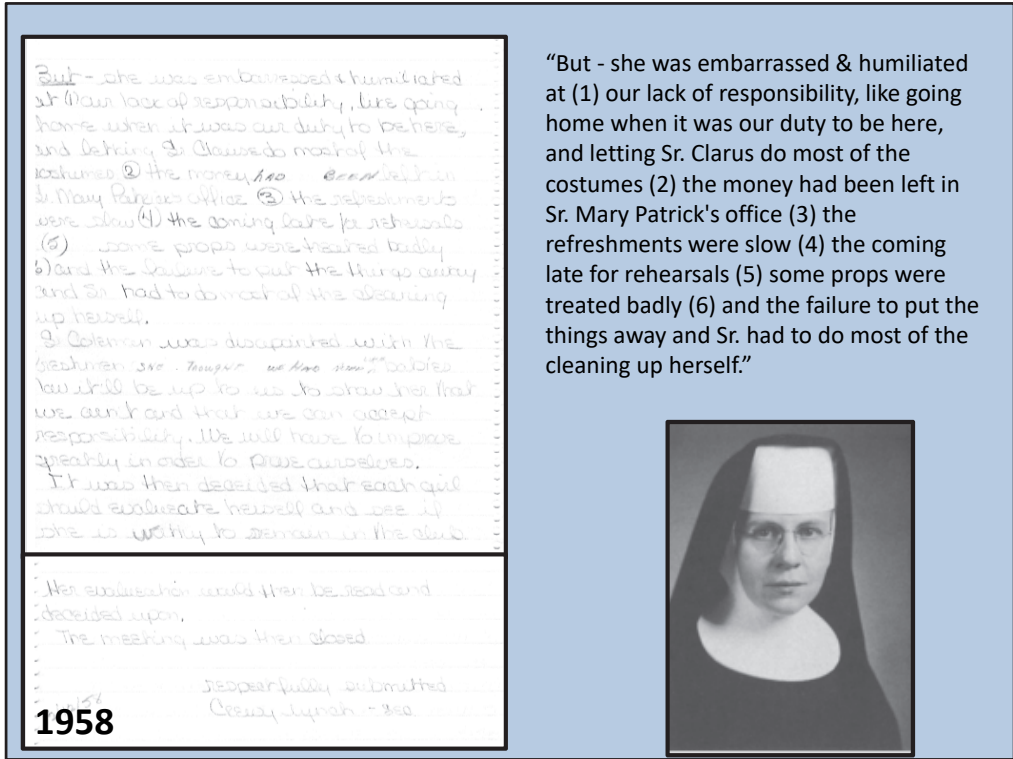 But - she was embarrassed & humiliated
at (1) our lack of responsibility, like going
home when it was our duty to be here,
and letting Sr. Clarus do most of the
costumes (2) the money HAD BEEN left in
Sr. Mary Patrick's office (3) the refreshments
were slow (4) the coming late for rehersals
(5) some props were treated badly
6) and the failure to put the things away
and Sr. had to do most of the cleaning
up herself.
Sr. Coleman was disapointed with the
freshmen SHE THOUGHT WE HAD babies
will be up to us to show her that
we ain't and that we can accept
responsibility. We will have to improve
greatly in order to prove ourselves.
It was then decided that each girl
should evaluate herself and see if
she is worthy to remain in the club.
Her evaluation would then be read and
decided upon.
The meeting was then closed
respectfully submitted
Lynch - sec.
1958
“But - she was embarrassed & humiliated
at (1) our lack of responsibility, like going
home when it was our duty to be here,
and letting Sr. Clarus do most of the
costumes (2) the money had been left in
Sr. Mary Patrick's office (3) the
refreshments were slow (4) the coming
late for rehearsals (5) some props were
treated badly (6) and the failure to put the
things away and Sr. had to do most of the
cleaning up herself.”